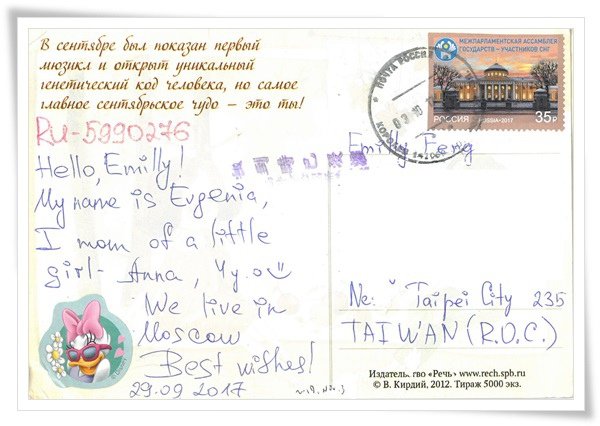 В сентябре был показан первый
мюзикл и открыт уникальный
генетический код человека, но самое
главное сентябрьское чудо – это ты!
RU-5990276
Hello, Emilly!
My name is Evgenia,
I mom of a little
girl- Anna, 4 y.o
We live in
Moscow
Best wishes!
29.09 2017
МЕЖПАРЛАМЕНТСКАЯ АССАМБЛЕЯ
ГОСУДАРСТВ – УЧАСТНИКОВ СНГ
РОССИЯ
RUSSIA•2017
35₽
ПОЧТА РОССИИ
КОРОЛЕВ
Emilly Feng
Taipei City 235
TAIWAN (R.O.C.)
Издательство «Речь» www.rech.spb.ru
© В. Кирдий, 2012. Тираж 5000 экз.